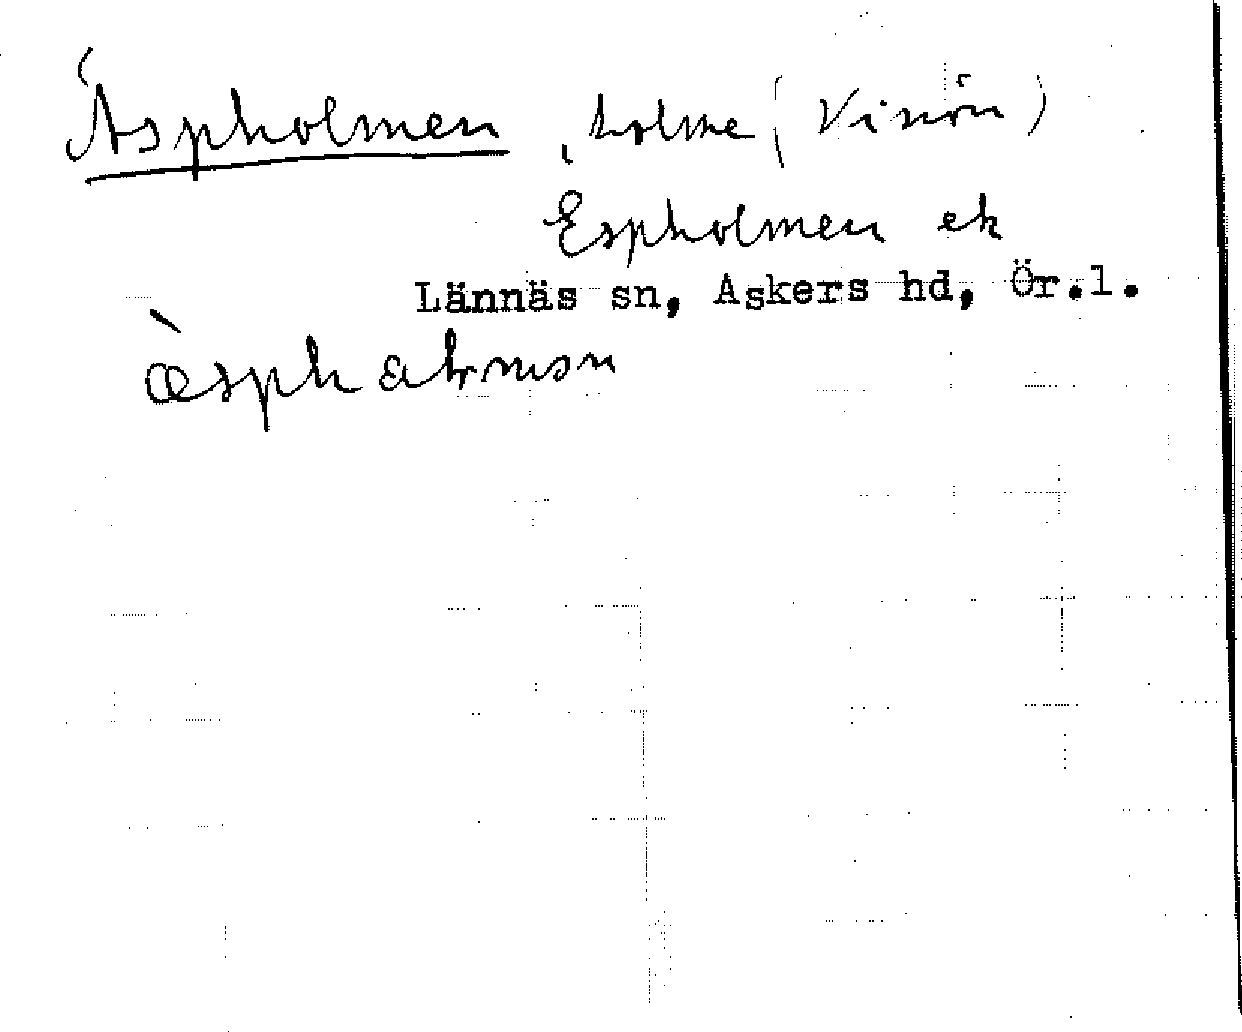 Äspholmen, holme (Vinön)
Espholmen ek
Lännäs sn, Askers hd, Ör.l.